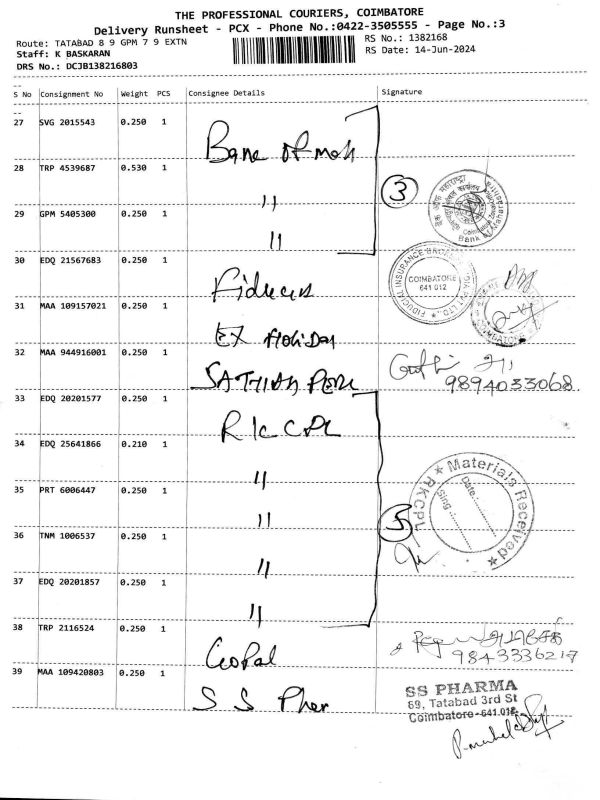 THE PROFESSIONAL COURIERS, COIMBATORE
Delivery Runsheet - PCX - Phone No.:0422-3505555 - Page No.:3
Route: TATABAD 8 9 GPM 7 9 EXTN
RS No.: 1382168
Staff: K BASKARAN
RS Date: 14-Jun-2024
DRS No.: DCJB138216803
S No Consignment No Weight PCS Consignee Details Signature
27 SVG 2015543 0.250 1 Bank of mah
28 TRP 4539687 0.530 1 "
3
29 GPM 5405300 0.250 1 "
बैंक ऑफ महाराष्ट्र
Bank of Maharashtra
30 EDQ 21567683 0.250 1 Fiducius
COIMBATORE
641 012
31 MAA 109157021 0.250 1 EX Holiday
COIMBATORE
32 MAA 944916001 0.250 1
9894033068
33 EDQ 20201577 0.250 1 RKCPL
34 EDQ 25641866 0.210 1 "
35 PRT 6006447 0.250 1 "
5
★ Materials Received ★
RKCPL
Date:
Sing:
36 TNM 1006537 0.250 1 "
37 EDQ 20201857 0.250 1 "
38 TRP 2116524 0.250 1 Gopal
9843336217
39 MAA 109420803 0.250 1 S S Phar
SS PHARMA
69, Tatabad 3rd St
Coimbatore-641 012.